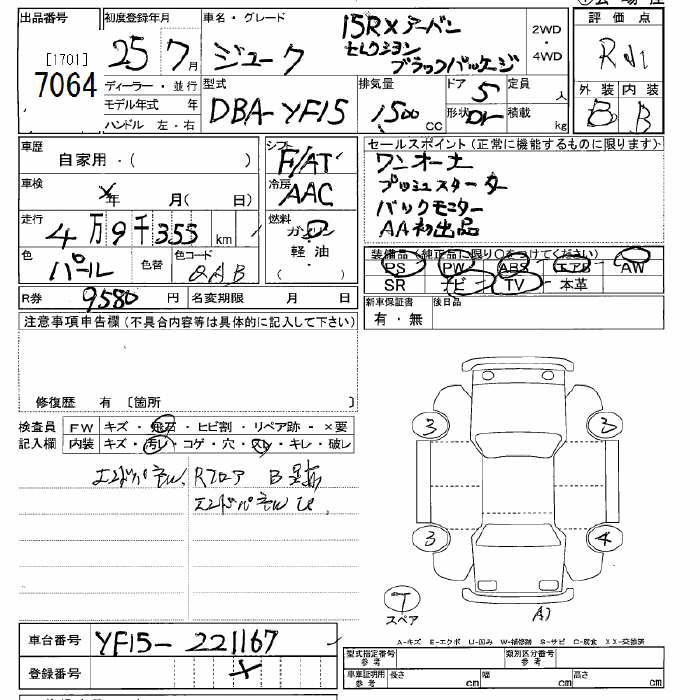 出品番号 初度登録年月 車名・グレード 15RXアーバン 2WD 評価点
[1701] 25 7月 ジューク セレクション ・
7064 ブラックパッケージ 4WD R
ディーラー・並行 型式 排気量 ドア 5 定員 人 外装 内装
モデル年式 年 DBA-YF15 1500 cc 形状 積載 kg B B
ハンドル 左・右
車歴 シフト F/AT セールスポイント(正常に機能するものに限ります)
自家用・( ) ワンオーナ
車検 ×年 月( 日) 冷房 AAC プッシュスターター
走行 4万9千355km 燃料 ガソリン バックモニター
・ AA初出品
色 パール 色替 色コード QAB 軽油 装備品(純正品に限り○をつけてください)
・ PS PW ABS エアB AW
( ) SR ナビ TV 本革
R券 9580円 名変期限 月 日 新車保証書 後日品
有・無
注意事項申告欄(不具合内容等は具体的に記入して下さい)
修復歴 有 〔箇所 〕
検査員 FW キズ・飛石・ヒビ割・リペア跡・×要
記入欄 内装 キズ・汚レ・コゲ・穴・スレ・キレ・破レ
エンドパネル Rフロア B
エンドパネル U
3 3
3 4
T
スペア
A1
A-キズ E-エクボ U-凹み W-補修跡 S-サビ C-腐食 XX-交換済
車台番号 YF15-221167 型式指定番号 参考 類別区分番号 参考
登録番号 × 車庫証明用 参考 長さ cm 幅 cm 高さ cm